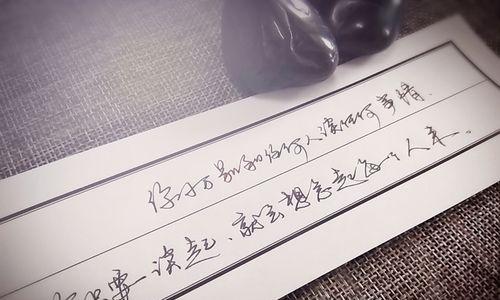 你千万别和任何人谈任何事情.
只要一谈起、就会想念起每个人来.